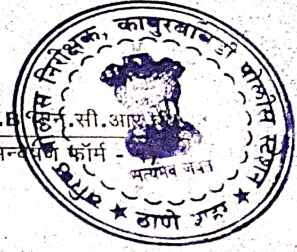 वरिष्ठ पोलीस निरीक्षक, कापुरबावडी पोलीस स्टेशन
ठाणे शहर
सत्यमेव जयते
एन.सी.आर.बी
फॉर्म -